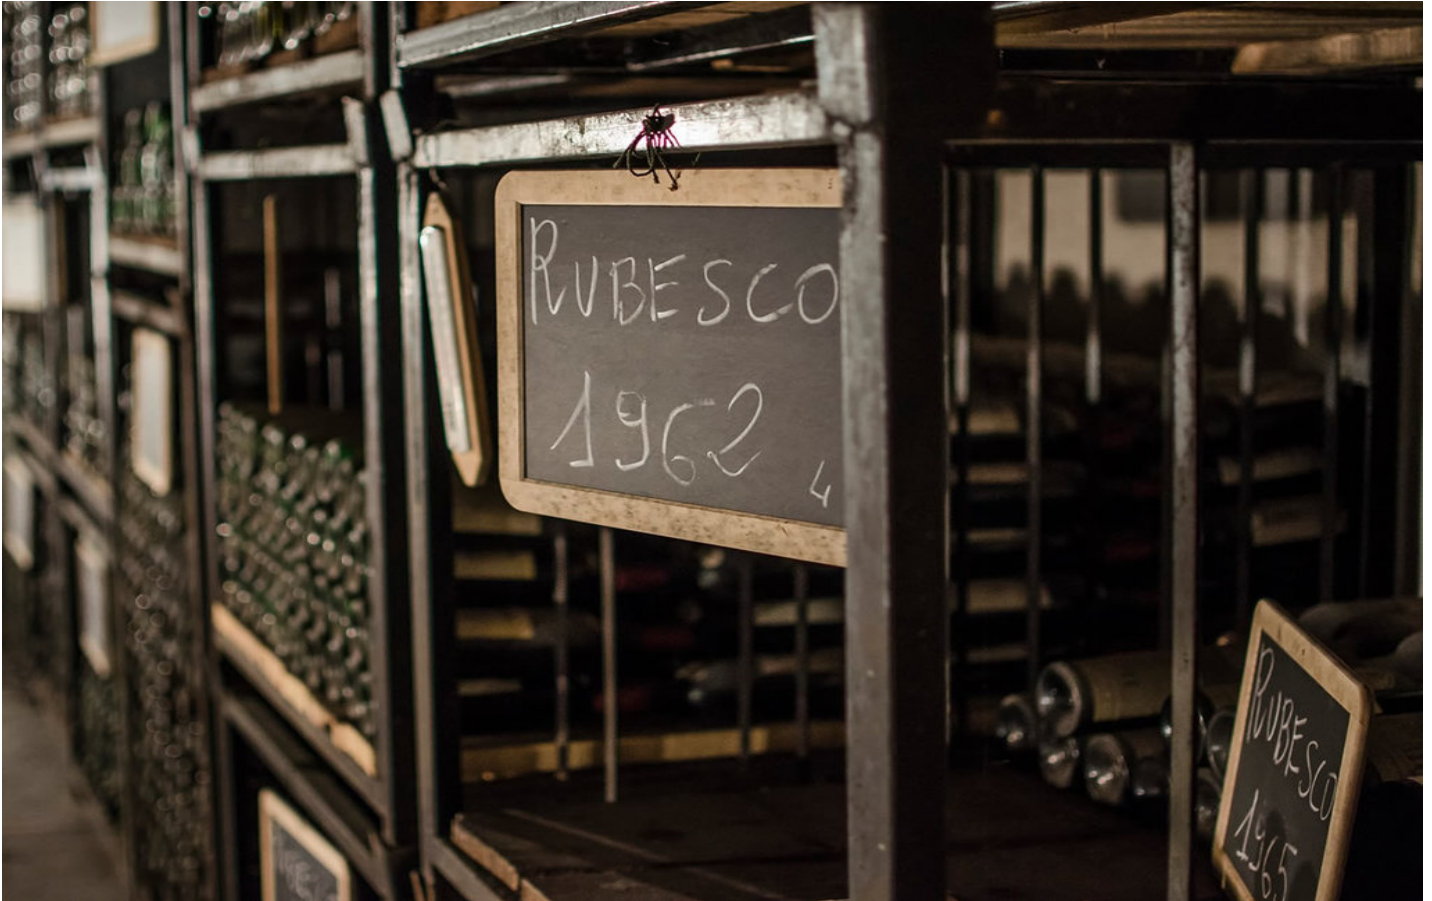 RUBESCO
1962
4
RUBESCO
1965